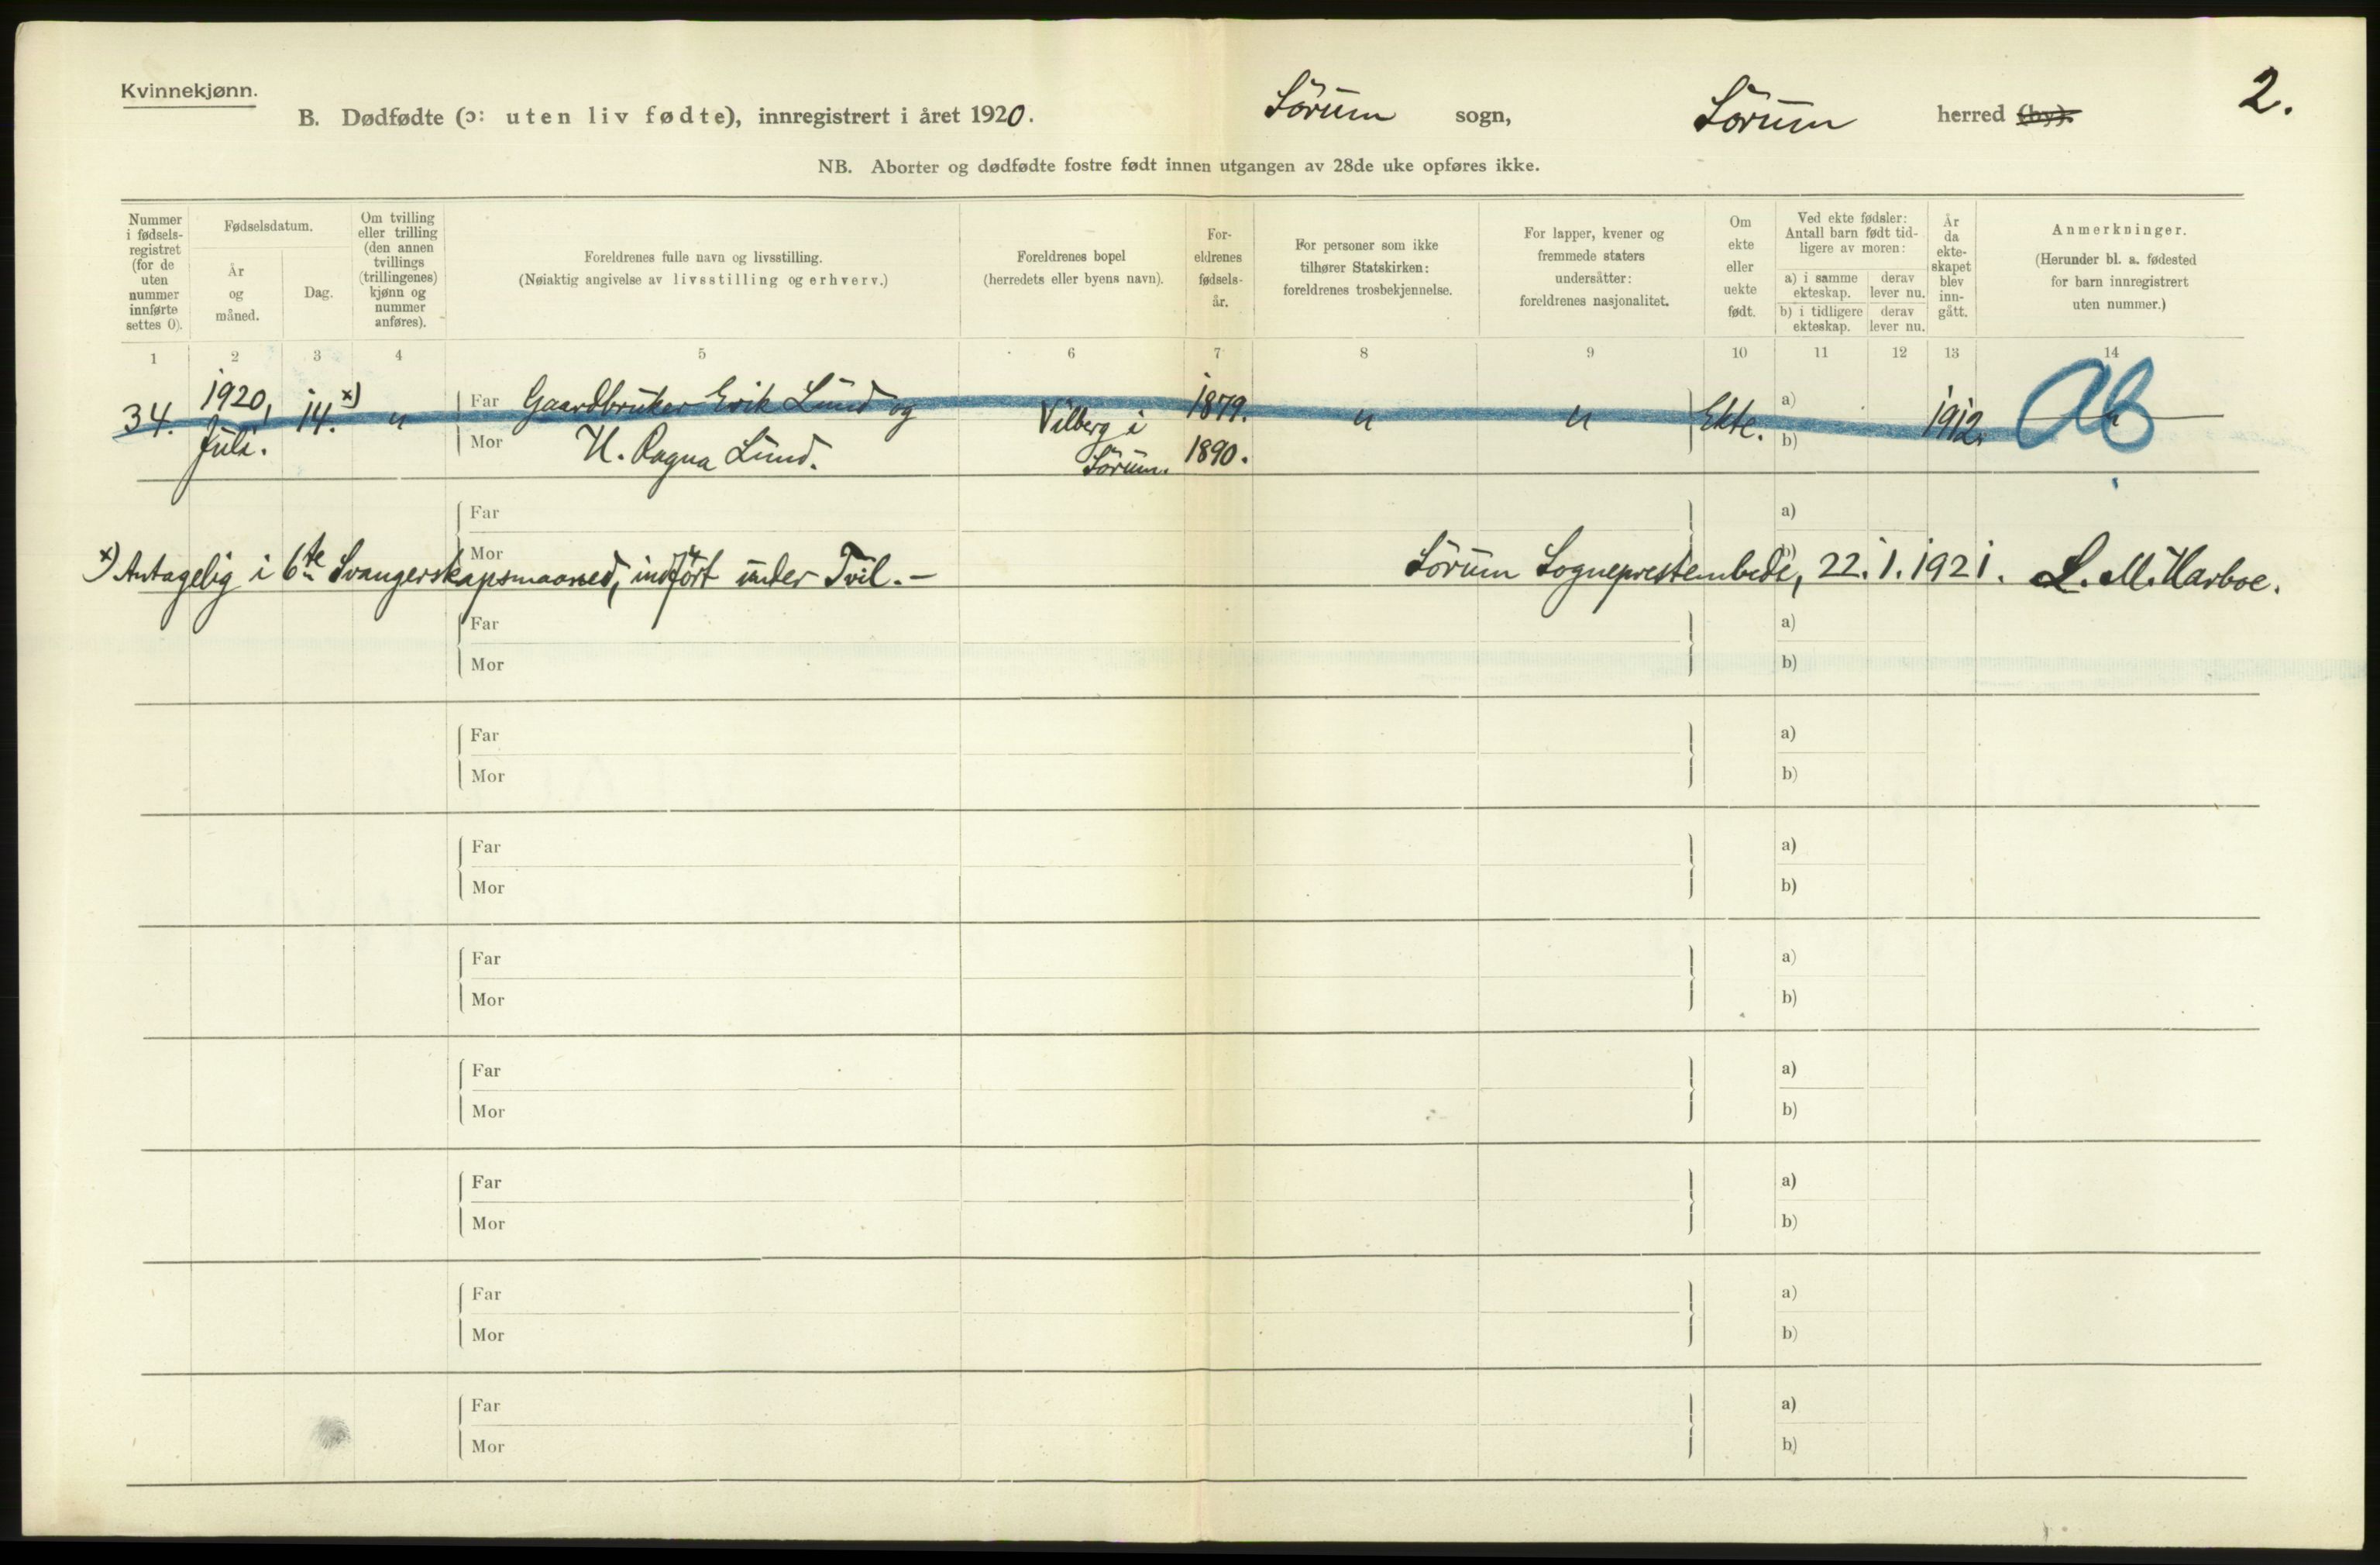 Kvinnekjønn.
2.
B. Dødfødte (ɔ: uten liv fødte), innregistrert i året 1920. Sörum sogn, Sörum herred (by).
NB. Aborter og dødfødte fostre født innen utgangen av 28de uke opføres ikke.
Nummer i fødsels-registret (for de uten nummer innførte settes 0).
Fødselsdatum.
År og måned.
Dag.
Om tvilling eller trilling (den annen tvillings (trillingenes) kjønn og nummer anføres).
Foreldrenes fulle navn og livsstilling.
(Nøiaktig angivelse av livsstilling og erhverv.)
Foreldrenes bopel
(herredets eller byens navn).
For-eldrenes fødsels-år.
For personer som ikke tilhører Statskirken: foreldrenes trosbekjennelse.
For lapper, kvener og fremmede staters undersåtter: foreldrenes nasjonalitet.
Om ekte eller uekte født.
Ved ekte fødsler: Antall barn født tid-ligere av moren:
a) i samme ekteskap.
derav lever nu.
b) i tidligere ekteskap.
derav lever nu.
År da ekte-skapet blev inn-gått.
Anmerkninger.
(Herunder bl. a. fødested for barn innregistrert uten nummer.)
1 2 3 4 5 6 7 8 9 10 11 12 13 14
34. 1920, Juli. 14. x) " Far Gaardbruker Erik Lund og Vilberg i 1879. " " Ekte. a) 1912. Ab
Mor H. Ragna Lund. Sörum. 1890. b)
Far a)
Mor b)
x) Antagelig i 6te Svangerskapsmaaned, indfört under Tvil. — Sörum Sogneprestembede, 22.1.1921. L. M. Harboe.
Far a)
Mor b)
Far a)
Mor b)
Far a)
Mor b)
Far a)
Mor b)
Far a)
Mor b)
Far a)
Mor b)
Far a)
Mor b)
Far a)
Mor b)